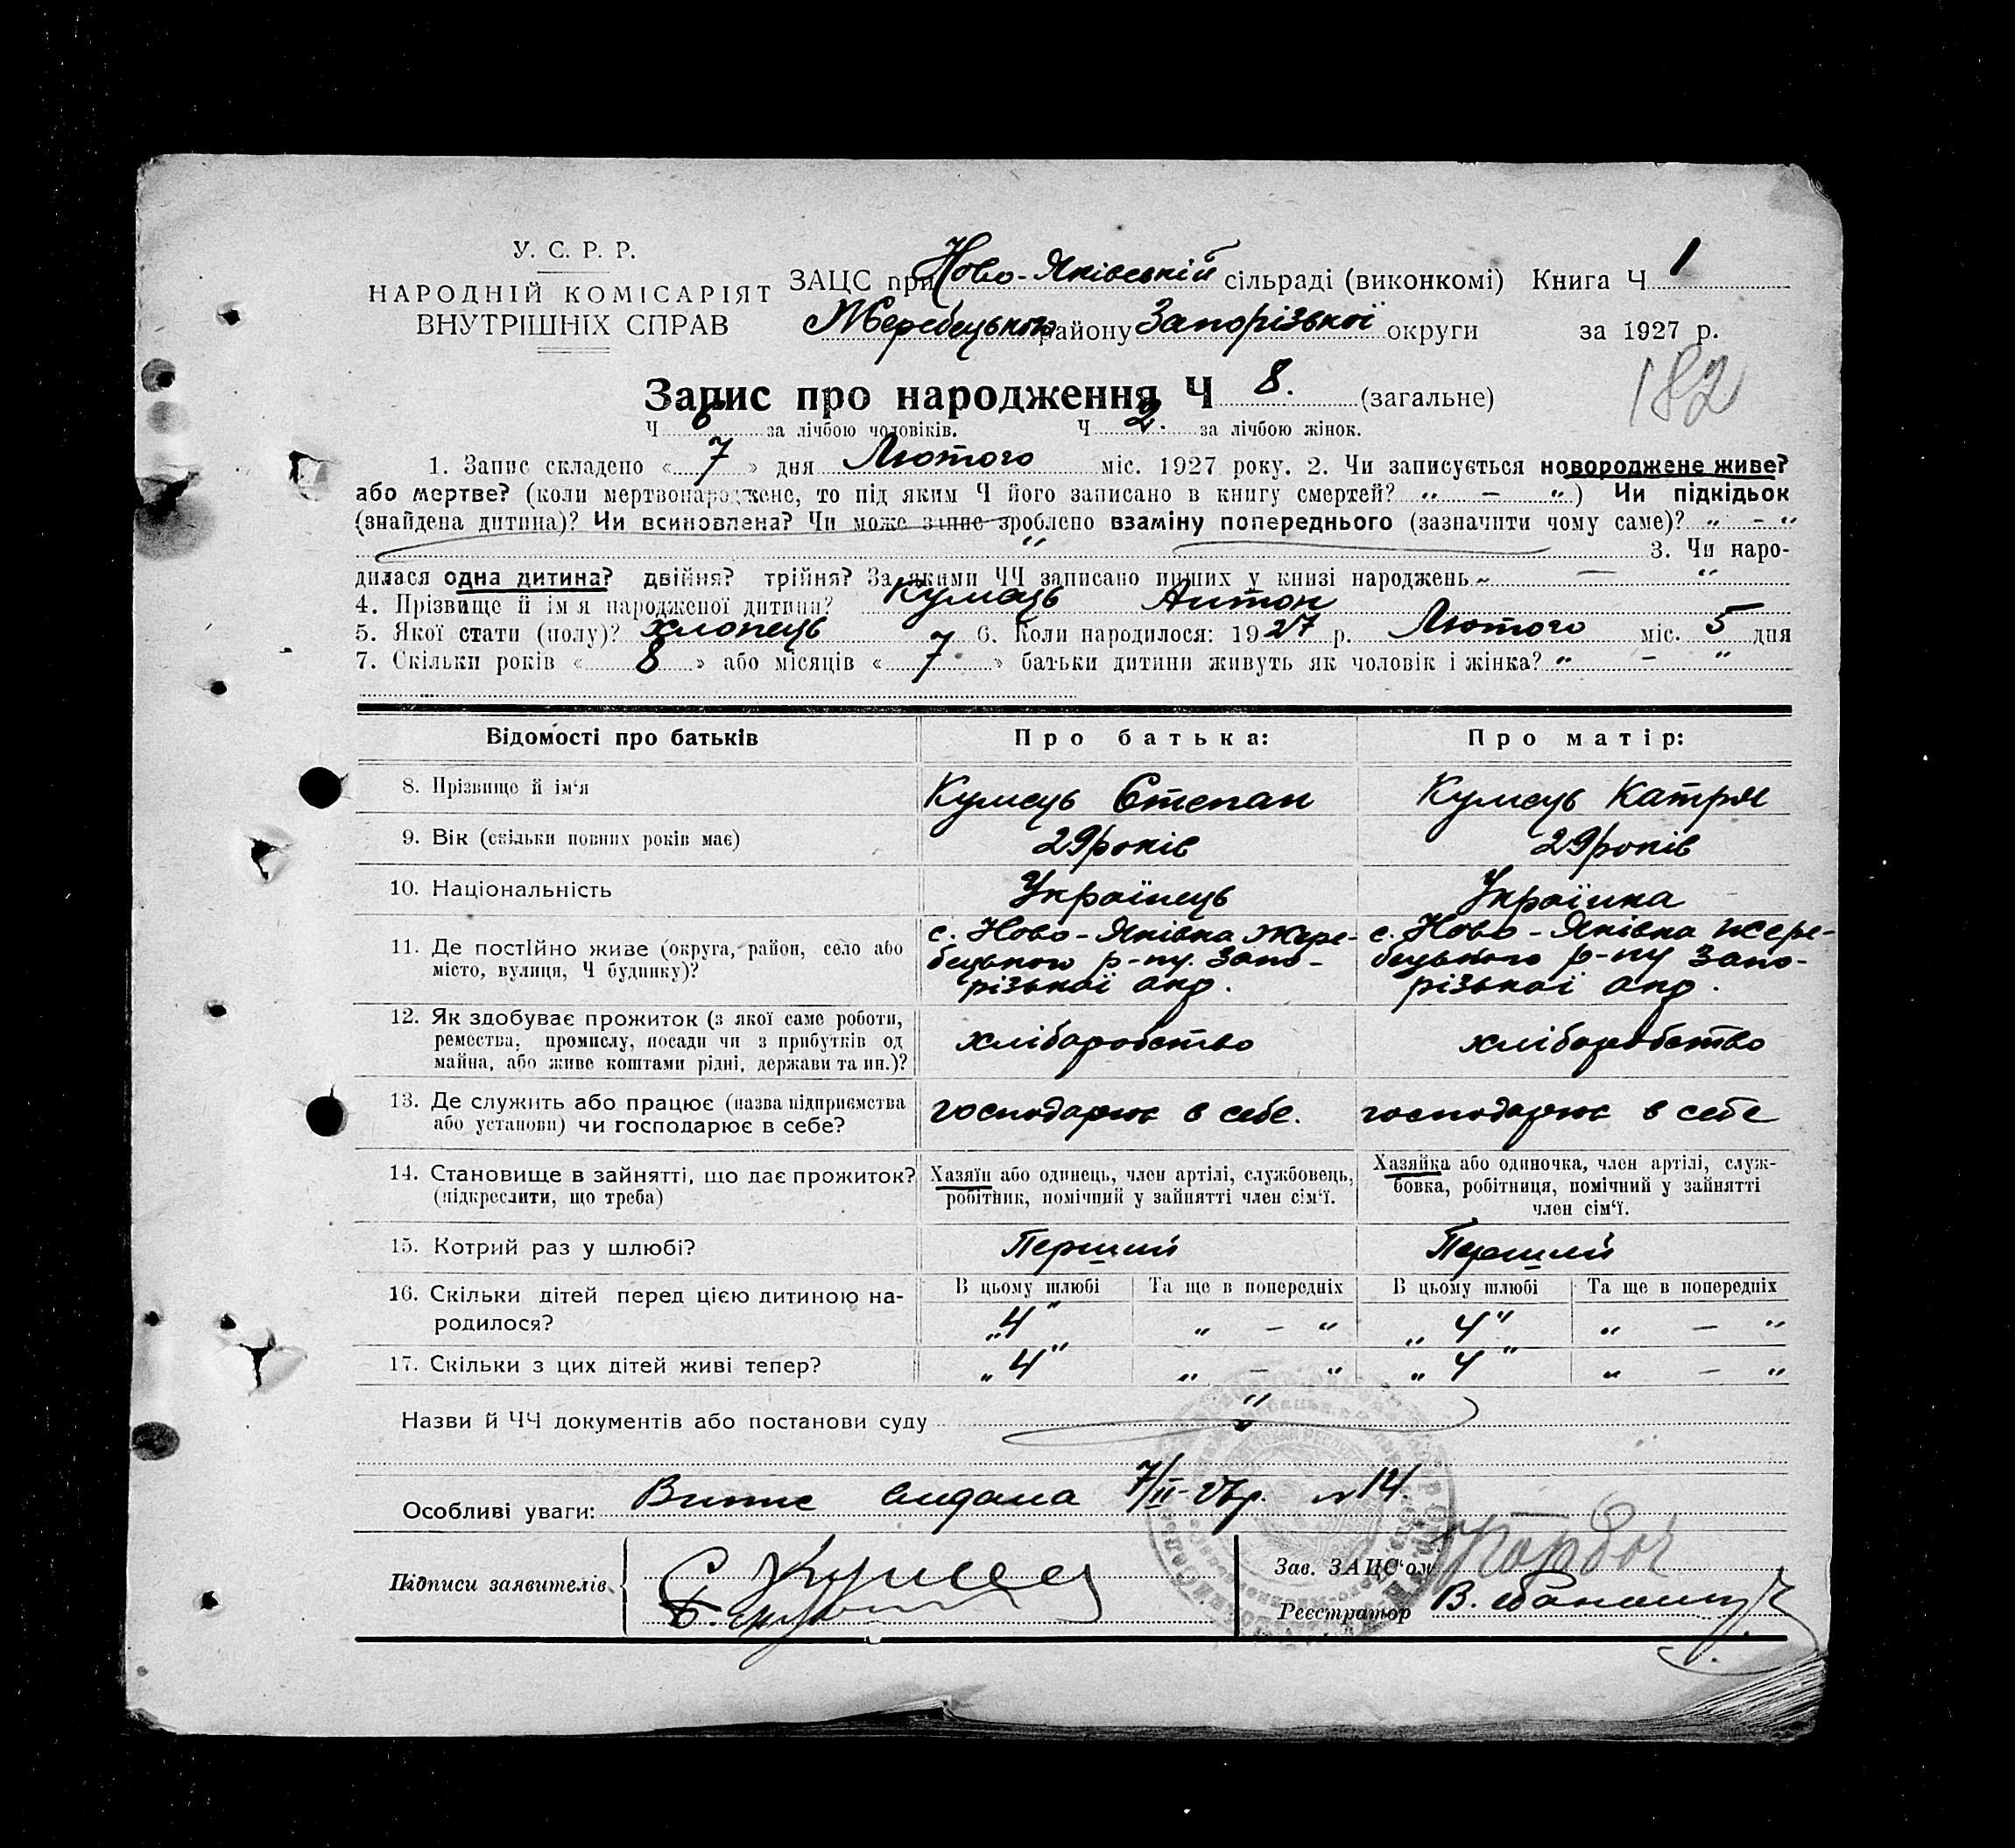 У. С. Р. Р.
НАРОДНІЙ КОМІСАРІЯТ
ВНУТРІШНІХ СПРАВ
ЗАЦС при Ново-Яківській сільраді (виконкомі) Книга Ч 1
Жеребецького району Запорізької округи за 1927 р.
182
Запис про народження Ч 8. (загальне)
Ч 6 за лічбою чоловіків. Ч 2. за лічбою жінок.
1. Запис складено « 7 » дня Лютого міс. 1927 року. 2. Чи записується новороджене живе?
або мертве? (коли мертвонароджене, то під яким Ч його записано в книгу смертей? „ — „) Чи підкідьок
(знайдена дитина)? Чи всиновлена? Чи може запис зроблено взаміну попереднього (зазначити чому саме)? „ - „
„ 3. Чи наро-
дилася одна дитина? двійня? трійня? За якими ЧЧ записано инших у книзі народжень „ — „
4. Прізвище й ім'я народженої дитини? Кумець Антон
5. Якої стати (полу)? хлопець 7 6. Коли народилося: 1927 р. Лютого міс. 5 дня
7. Скільки років « 8 » або місяців « 7 » батьки дитини живуть як чоловік і жінка? „ - „
Відомості про батьків Про батька: Про матір:
8. Прізвище й ім'я Кумець Степан Кумець Катря
9. Вік (скільки повних років має) 29 років 29 років
10. Національність Українець Українка
11. Де постійно живе (округа, район, село або місто, вулиця, Ч будинку)?
с. Ново-Яківка Жере-
бецького р-ну. Запо-
різької окр.
с. Ново-Яківка Жере-
бецького р-ну Запо-
різької окр.
12. Як здобуває прожиток (з якої саме роботи,
ремества, промислу, посади чи з прибутків од
майна, або живе коштами рідні, держави та ин.)?
хліборобство хліборобство
13. Де служить або працює (назва підприємства
або установи) чи господарює в себе?
господарює в себе. господарює в себе
14. Становище в зайнятті, що дає прожиток?
(підкреслити, що треба)
Хазяїн або одинець, член артілі, службовець,
робітник, помічний у зайнятті член сім'ї.
Хазяйка або одиночка, член артілі, служ-
бовка, робітниця, помічний у зайнятті
член сім'ї.
15. Котрий раз у шлюбі? Перший Перший
16. Скільки дітей перед цією дитиною на-
родилося?
В цьому шлюбі Та ще в попередніх В цьому шлюбі Та ще в попередніх
„4" „ - „ „4" „ - „
17. Скільки з цих дітей живі тепер? „4" „ - „ „4" „ - „
Назви й ЧЧ документів або постанови суду „
Особливі уваги: Випис видана 7/II-27р. № 14.
Підписи заявителів С. Кумец
Зав. ЗАЦС'ом
Реєстратор В.